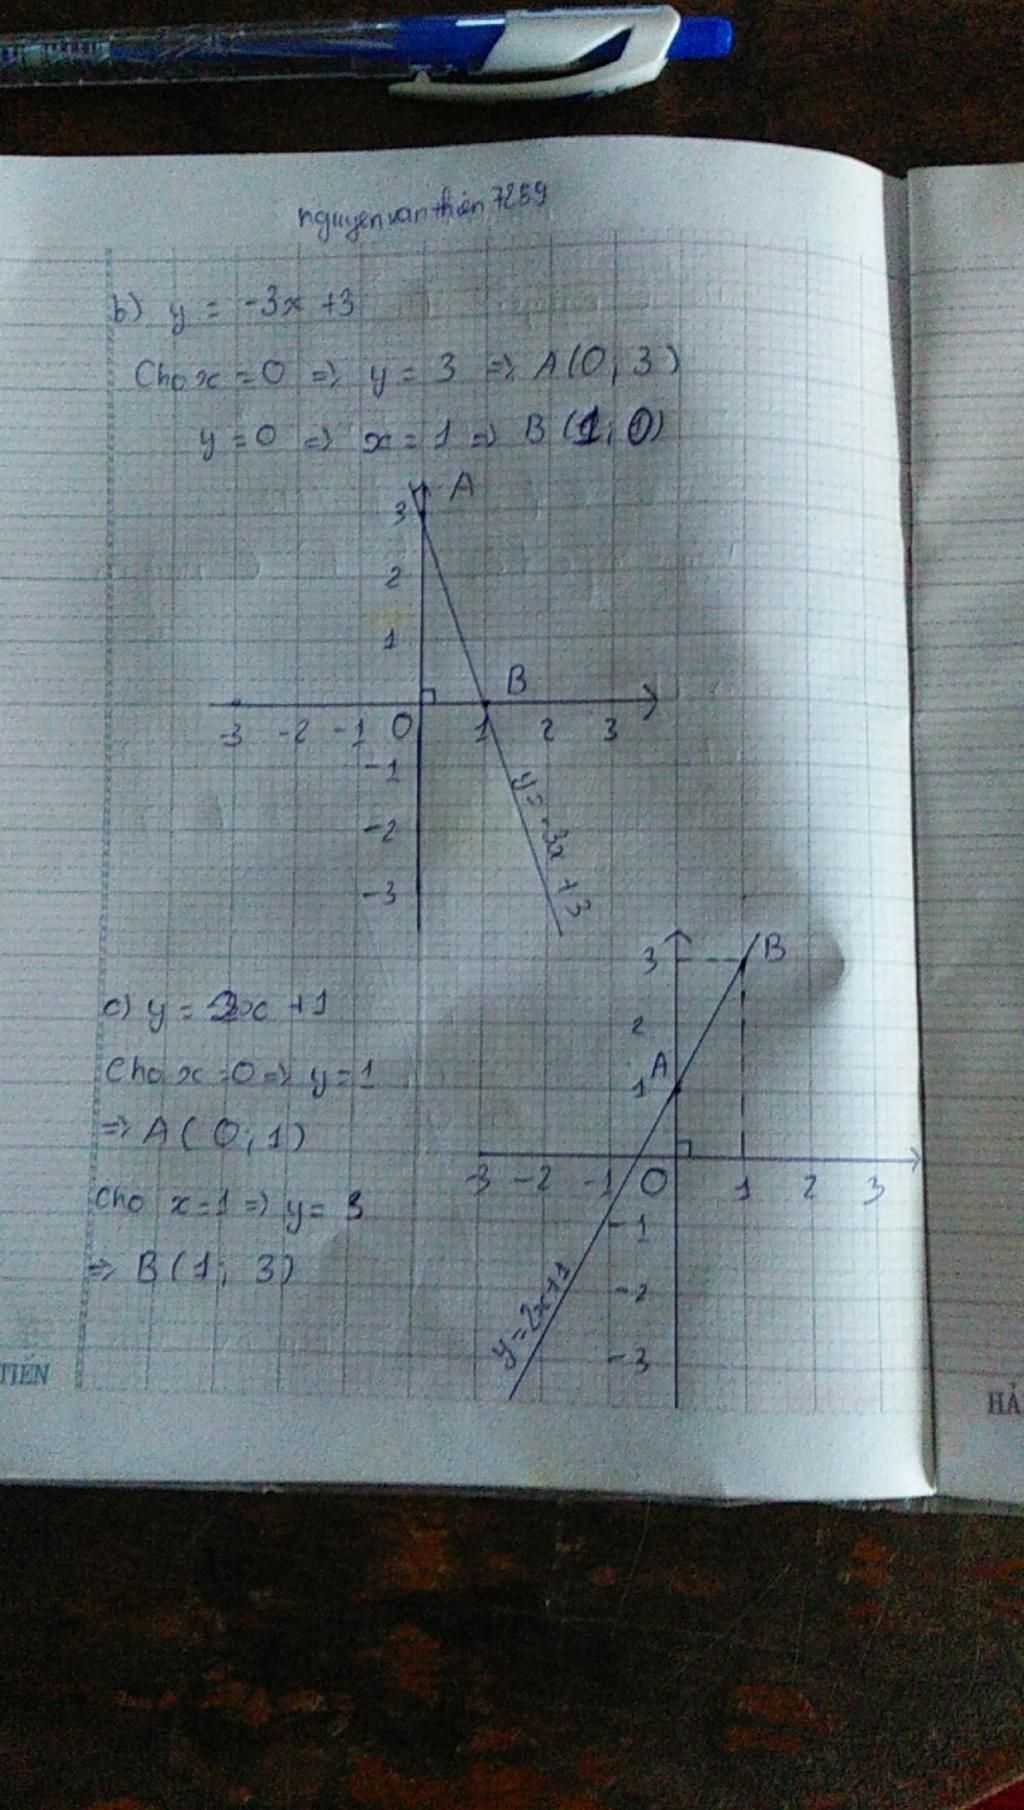 nguyenvanthien7259
b) y = -3x +3
Cho x = 0 => y = 3 => A(0; 3)
y = 0 => x = 1 => B (1; 0)
A
3
2
1
B
-3 -2 -1 0 1 2 3
-1
-2
-3
y = -3x + 3
c) y = 2x + 1
Cho x = 0 => y = 1
=> A( 0; 1)
Cho x = 1 => y = 3
=> B(1; 3)
3 B
2
A
1
-3 -2 -1 0 1 2 3
-1
-2
-3
y = 2x+1
TIẾN
HẢ